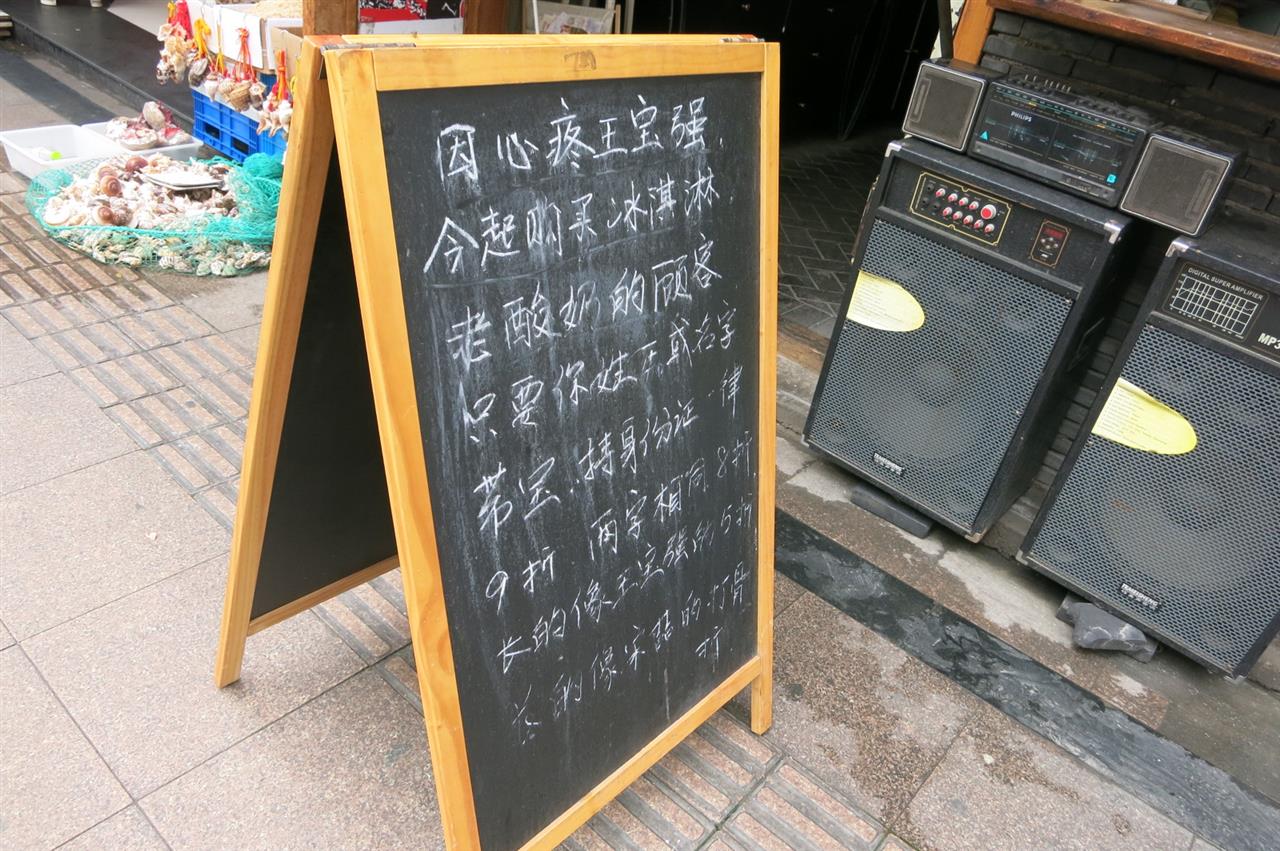 因心疼王宝强,
今起购买冰淇淋,
老酸奶的顾客
只要你姓王或名字
带宝、持身份证一律
9折 两字相同8折,
长的像王宝强的5折
长的像宋喆的打骨
折
PHILIPS
DIGITAL SUPER AMPLIFIER
MP3